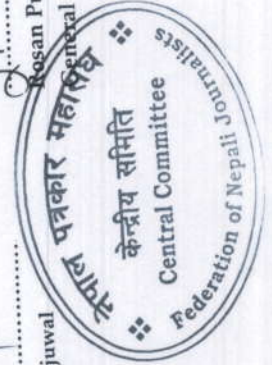 Rosan
General
juwal
नेपाल पत्रकार महासंघ
केन्द्रीय समिति
Central Committee
Federation of Nepali Journalists